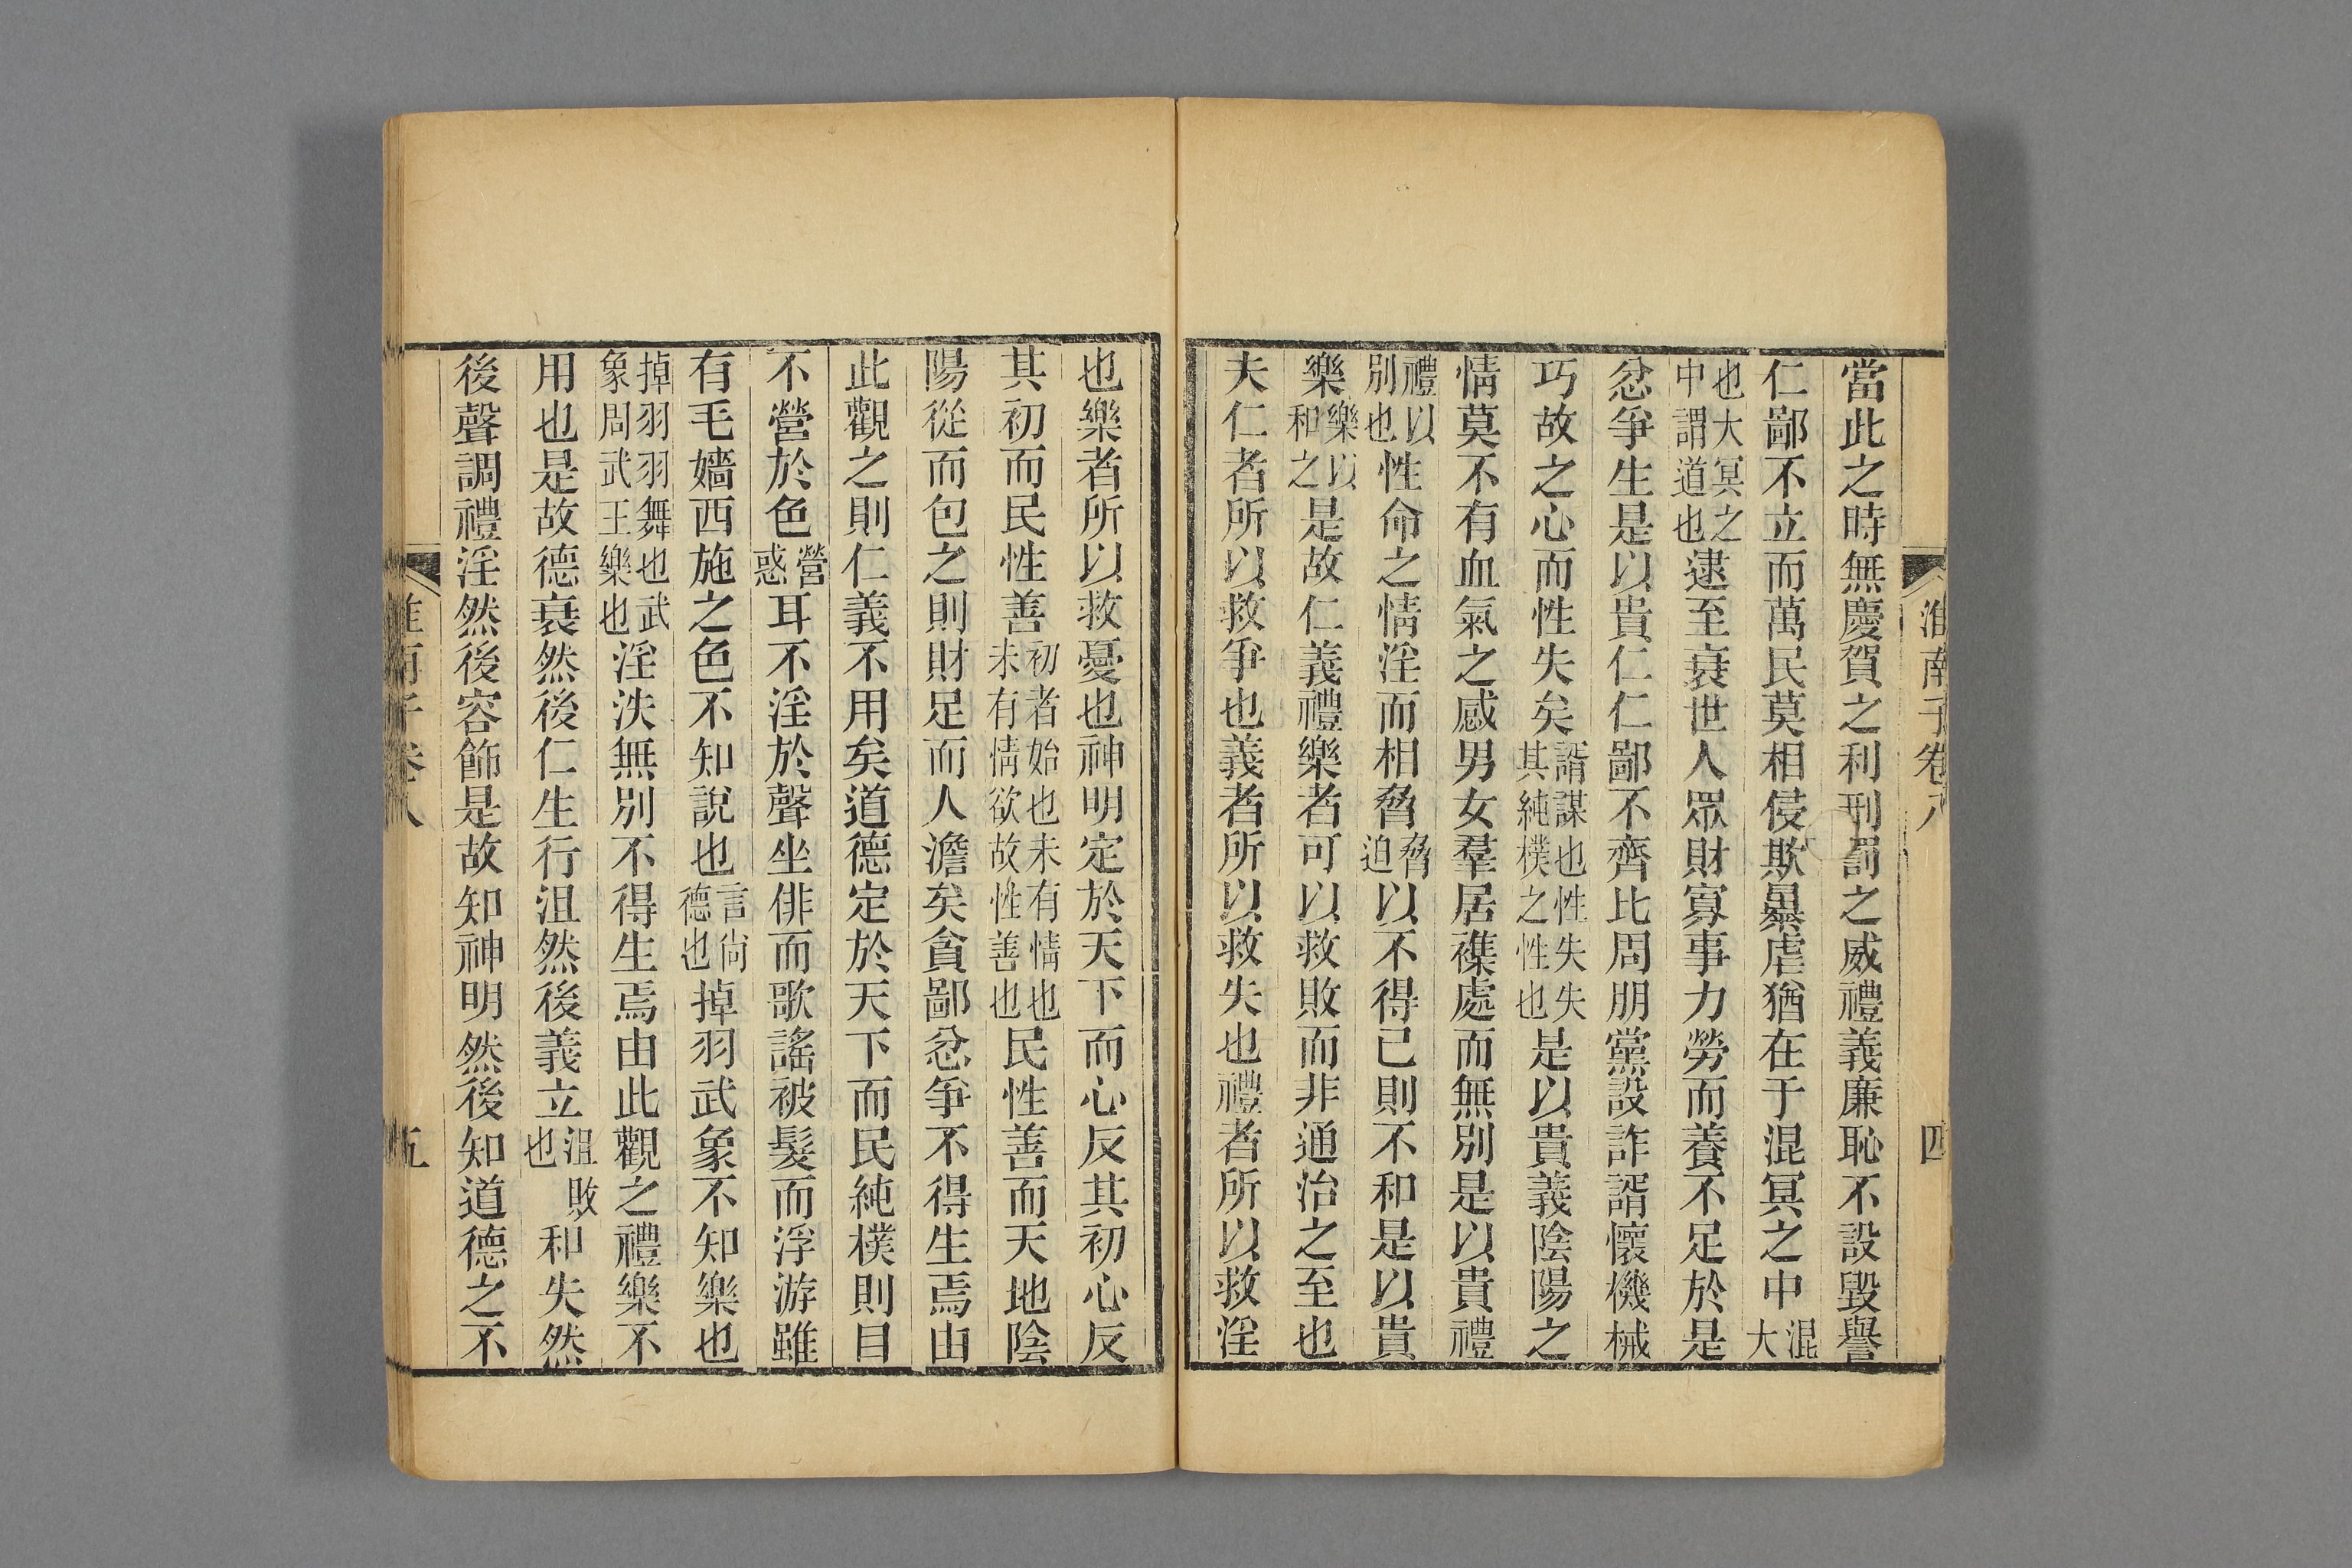 淮南子卷八 四
當此之時無慶賀之利刑罰之威禮義廉恥不設毀譽
仁鄙不立而萬民莫相侵欺暴虐猶在于混冥之中混大
也大冥之中謂道也逮至衰世人眾財寡事力勞而養不足於是
忿爭生是以貴仁仁鄙不齊比周朋黨設詐諝懷機械
巧故之心而性失矣諝謀也性失失其純樸之性也是以貴義陰陽之
情莫不有血氣之感男女羣居襍處而無別是以貴禮
禮以別也性命之情淫而相脅脅迫以不得已則不和是以貴
樂樂以和之是故仁義禮樂者可以救敗而非通治之至也
夫仁者所以救爭也義者所以救失也禮者所以救淫
也樂者所以救憂也神明定於天下而心反其初心反
其初而民性善初者始也未有情也未有情欲故性善也民性善而天地陰
陽從而包之則財足而人澹矣貪鄙忿爭不得生焉由
此觀之則仁義不用矣道德定於天下而民純樸則目
不營於色營惑耳不淫於聲坐俳而歌謠被髮而浮游雖
有毛嬙西施之色不知說也言尚德也掉羽武象不知樂也
掉羽羽舞也武象周武王樂也淫泆無別不得生焉由此觀之禮樂不
用也是故德衰然後仁生行沮然後義立沮敗也和失然
後聲調禮淫然後容飾是故知神明然後知道德之不
淮南子卷八 五